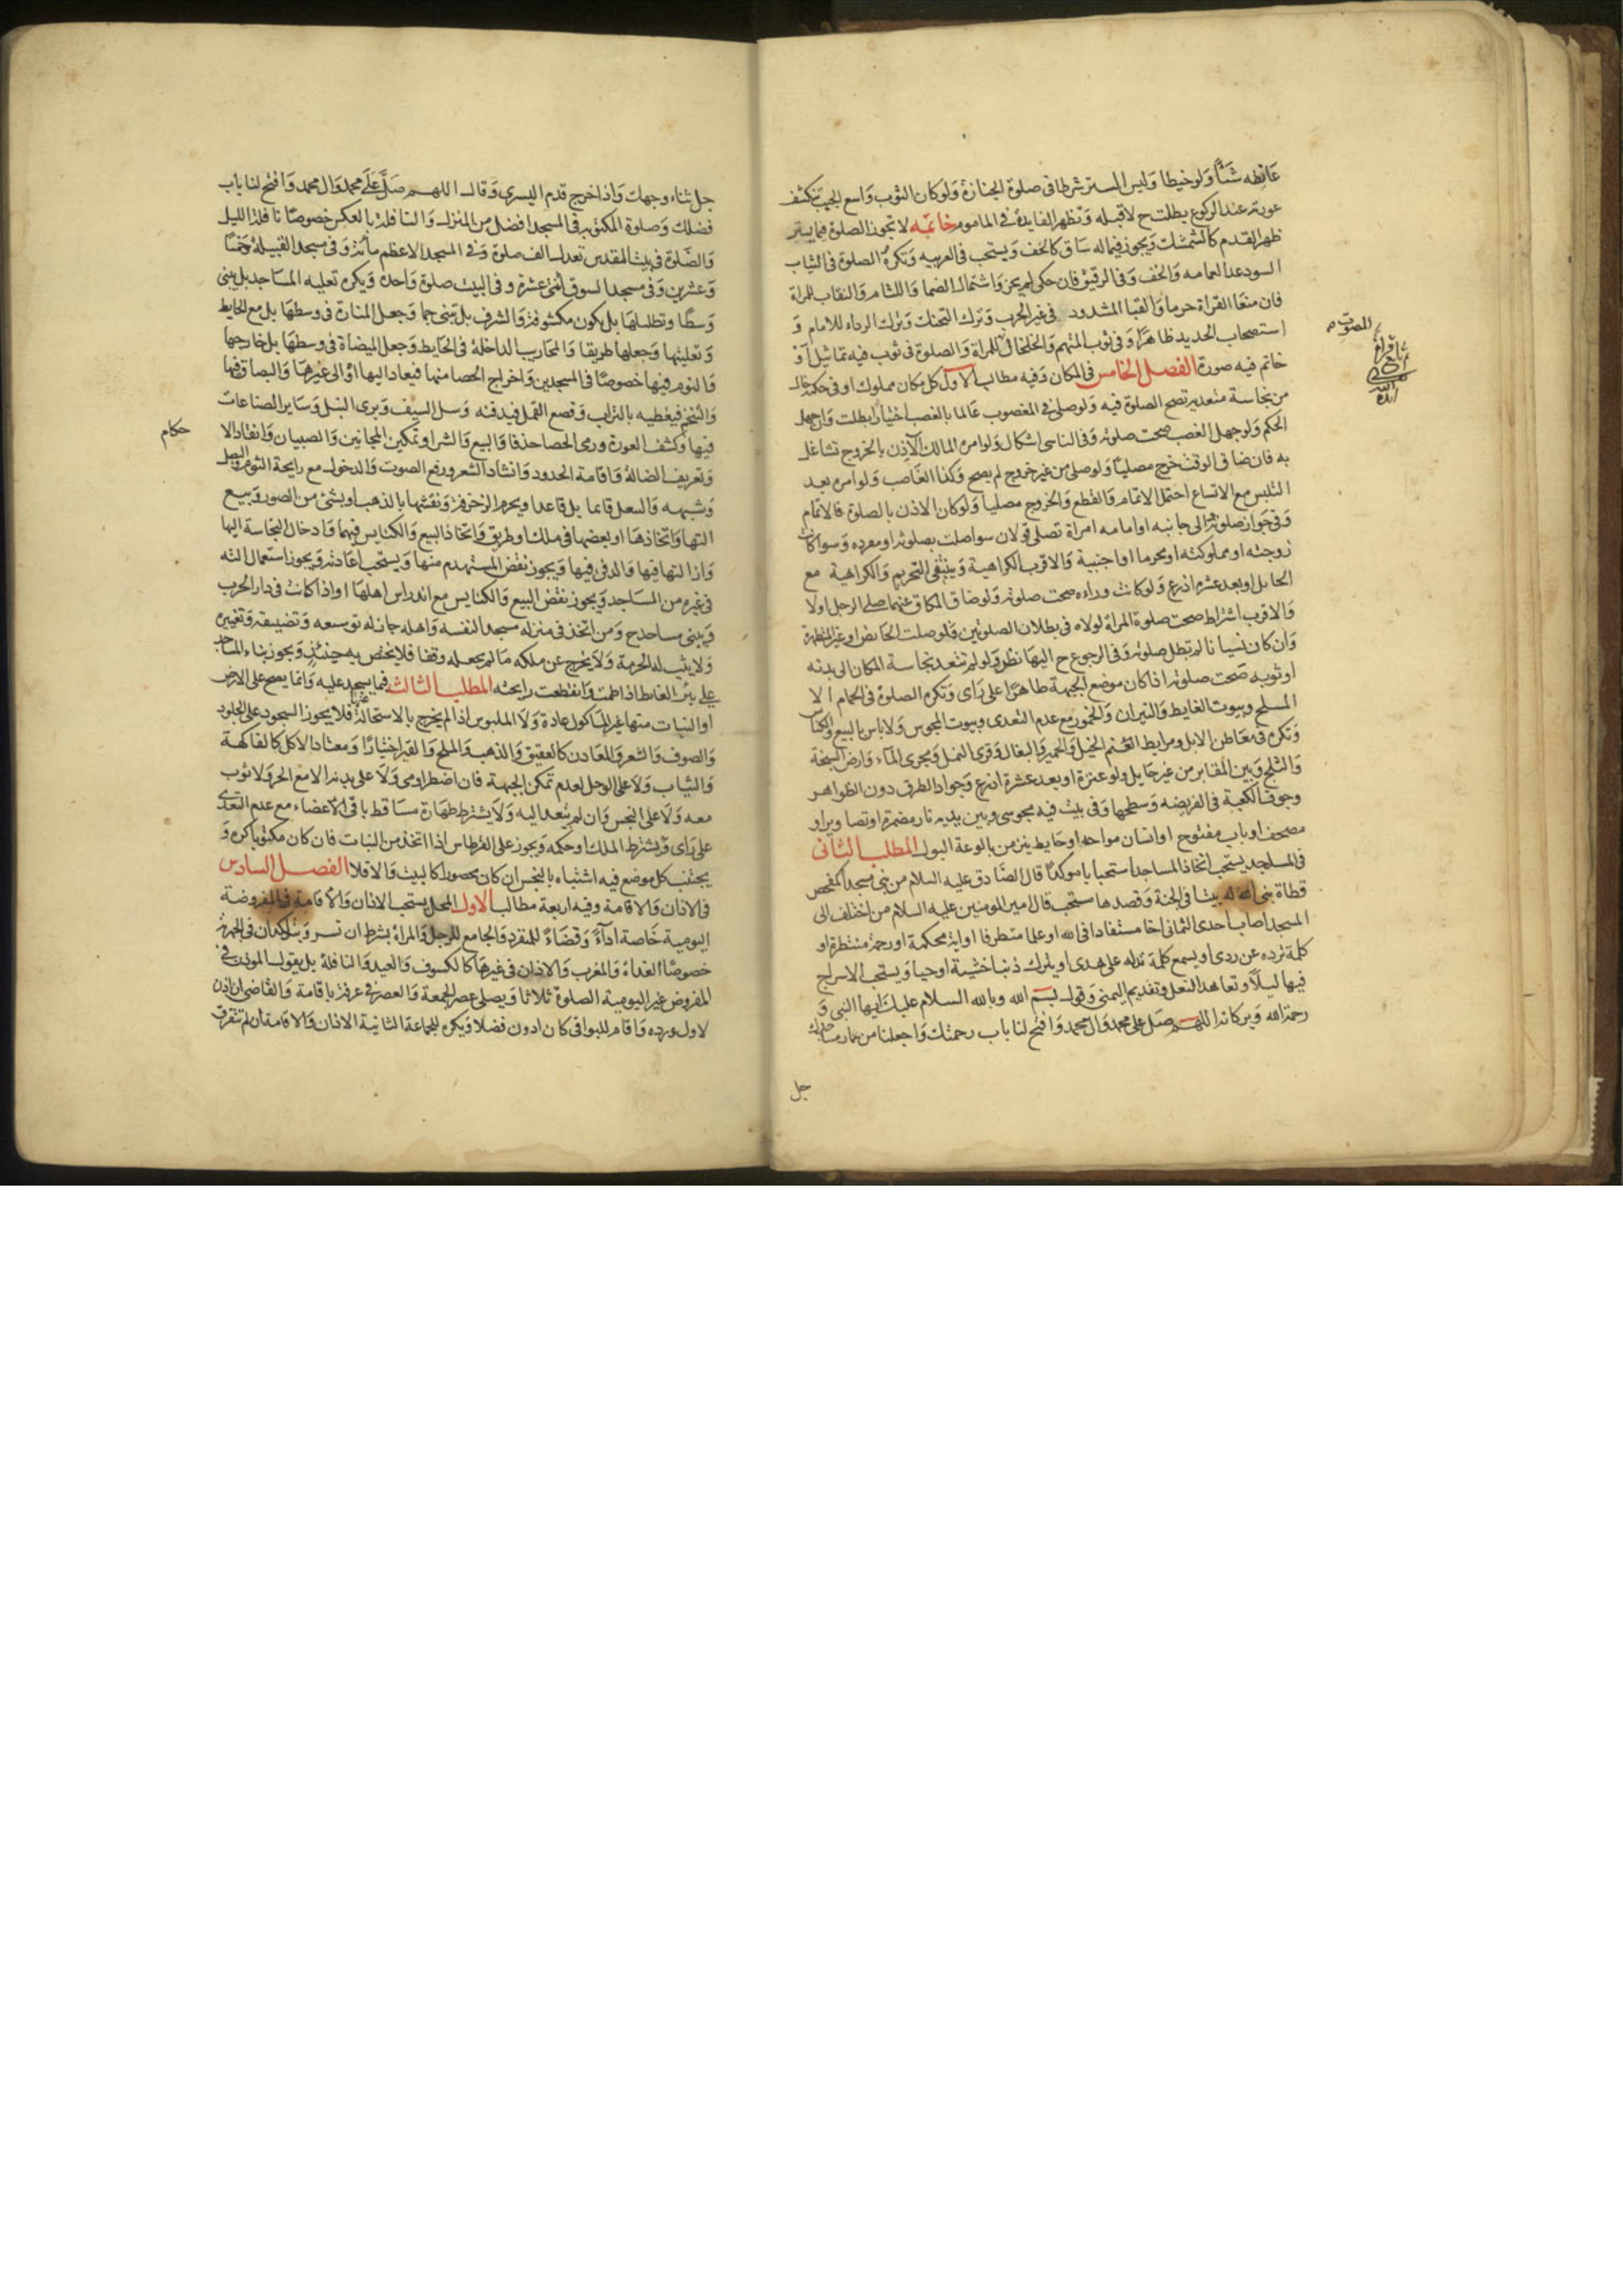 عاتقه شئاً ولو خيطا وليس الستر شرطا فى صلوة الجنازة ولو كان الثوب واسع الجيب تنكشف
عورته عند الركوع بطلت ح لا قبله وتظهر الفايدة فى الماموم خاتمه لا تجوز الصلوة فيما يستر
ظهر القدم كالشمشك ويجوز فيما له ساق كالخف ويستحب فى العربيه وتكره الصلوة فى الثياب
السود عدا العمامه والخف وفى الرقيق فان حكى لم يجز واشتمال الصما واللثام والنقاب للمراة
فان منعا القراة حرما والقبا المشدود فى غير الحرب وترك التحنك وترك الرداء للامام و
استصحاب الحديد ظاهرًا وفى ثوب المتهم والخلخال للمراة والصلوة فى ثوب فيه تماثيل او
خاتم فيه صورة الفصل الخامس فى المكان وفيه مطالب الاول كل مكان مملوك او فى حكمه خال
من نجاسة متعديه تصح الصلوة فيه ولو صلى فى المغصوب عالما بالغصب اختيارا بطلت وان جهل
الحكم ولو جهل الغصب صحت صلوته وفى الناسى اشكال ولو امره المالك الآذن بالخروج تشاغل
به فان ضاق الوقت خرج مصليًا ولو صلى من غير خروج لم يصح وكذا الغاصب ولو امره بعد
التلبس مع الاتساع احتمل الاتمام والقطع والخروج مصليا ولو كان الاذن بالصلوة فالاتمام
وفى جواز صلوته الى جانبه او امامه امراة تصلى قولان سوا صلت بصلوته او منفرده وسوا كانت
زوجته او مملوكته او محرما او اجنبية والاقرب الكراهية وينتفى التحريم والكراهية مع
الحايل او بعد عشرة اذرع ولو كانت وراءه صحت صلوته ولو ضاق المكان عنهما صلى الرجل اولا
والاقرب اشتراط صحت صلوة المراة لولاه فى بطلان الصلوتين فلو صلت الحايض او غير المتطهرة
وان كان نسيانا لم تبطل صلوته وفى الرجوع ح اليها نظر ولو لم تتعد نجاسة المكان الى بدنه
او ثوبه صحت صلوته اذا كان موضع الجبهة طاهرًا على راى وتكره الصلوة فى الحمام الا
المسلخ وبيوت الغايط والنيران والخمور مع عدم التعدى وبيوت المجوس ولا باس بالبيع والكنايس
وتكره فى معاطن الابل ومرابط الغنم الخيل والحمير والبغال وقرى النمل ومجرى الماء وارض السبخة
والثلج وبين المقابر من غير حايل ولو عنزة او بعد عشرة اذرع وجواد الطرق دون الظواهر
وجوف الكعبة فى الفريضه وسطحها وفى بيت فيه مجوسى وبين يديه نار مضرمة او تصاوير او
مصحف او باب مفتوح او انسان مواجه او حايط ينز من بالوعة البول المطلب الثانى
فى المساجد يستحب اتخاذ المساجد استحبابا موكدًا قال الصادق عليه السلام من بنى مسجدا كمفحص
قطاة بنى الله له بيتا فى الجنة وقصدها مستحب قال امير المومنين عليه السلام من اختلف الى
المسجد اصاب احدى الثمانى اخا مستفادا فى الله او علما مستطرفا او اية محكمة او رحمة منتظرة او
كلمة ترده عن ردى او يسمع كلمة تدله على هدى او يترك ذنبا خشية او حيا ويستحب الاسراج
فيها ليلاً وتعاهد النعل وتقديم اليمنى وقول بسم الله وبالله السلام عليك ايها النبى و
رحمة الله وبركاته اللهم صل على محمد وال محمد وافتح لنا باب رحمتك واجعلنا من عمار مساجدك
جل
جل ثناء وجهك واذا خرج قدم اليسرى وقال اللهم صل على محمد وال محمد وافتح لنا باب
فضلك وصلوة المكتوبة فى المسجد افضل من المنزل والنافلة بالعكس خصوصًا نافلة الليل
والصلوة فى بيت المقدس تعدل الف صلوة وفى المسجد الاعظم مأته وفى مسجد القبيلة خمسًا
وعشرين وفى مسجد السوق اثنى عشرة وفى البيت صلوة واحدة ويكره تعليه المساجد بل يبنى
وسطًا وتظليلها بل يكون مكشوفة والشرف بل تبنى جما وجعل المنارة فى وسطها بل مع الحايط
وتعليتها وجعلها طريقا والمحاريب الداخلة فى الحايط وجعل الميضاة فى وسطها بل خارجها
والنوم فيها خصوصًا فى المسجدين واخراج الحصا منها فيعاد اليها او الى غيرها والبصاق فيها
والتنخم فيغطيه بالتراب وقصع القمل فيدفنه وسل السيف وبرى النبل وساير الصناعات
فيها وكشف العورة ورمى الحصا حذفا والبيع والشرا وتمكين المجانين والصبيان وانفاذ الا
حكام
وتعريف الضالة واقامة الحدود وانشاد الشعر ورفع الصوت والدخول مع رايحة الثوم والبصل
وشبهه والتنعل قايما بل قاعدا ويحرم الزخرفة ونقشها بالذهب او بشئ من الصور وبيع
التها واتخاذها او بعضها فى ملك او طريق واتخاذ البيع والكنايس فيهما وادخال النجاسة اليها
وازالتها فيها والدفن فيها ويجوز نقض المستهدم منها ويستحب اعادته ويجوز استعمال التة
فى غيره من المساجد ويجوز نقض البيع والكنايس مع اندراس اهلها او اذا كانت فى دار الحرب
وتبنى مساجد ح ومن اتخذ فى منزله مسجدا لنفسه واهله جاز له توسيعه وتضييقه وتغييره
ولا يثبت له الحرمة ولا يخرج عن ملكه ما لم يجعله وقفا فلا يختص به حينئذ ويجوز بناء المساجد
على بئر الغايط اذا طمت وانقطعت رايحته المطلب الثالث فيما يسجد عليه وانما يصح على الارض
او النبات منها غير الماكول عادة ولا الملبوس اذا لم يخرج بالاستحالة فلا يجوز السجود على الجلود
والصوف والشعر والمعادن كالعقيق والذهب والملح والقير اختيارًا ومعتاد الاكل كالفاكهة
والثياب ولا على الوحل لعدم تمكن الجبهة فان اضطر اومى ولا على يديه الا مع الحر ولا ثوب
معه ولا على النجس وان لم يتعد اليه ولا يشترط طهارة مساقط باقى الاعضاء مع عدم التعدى
على راى ويشترط الملك او حكمه ويجوز على القرطاس اذا اتخذ من النبات فان كان مكتوبا كره و
يجتنب كل موضع فيه اشتباه بالنجس ان كان محصورا كالبيت والا فلا الفصل السادس
فى الاذان والاقامة وفيه اربعة مطالب الاول المحل يستحب الاذان والاقامة فى المفروضة
اليومية خاصة اداءً وقضاءً للمنفرد والجامع للرجل والمراة بشرط ان تسر ويتاكدان فى الجهرية
خصوصًا الغداة والمغرب ولا اذان فى غيرها كالكسوف والعيد والنافلة بل يقول الموذن فى
المفروض غير اليومية الصلوة ثلاثا ويصلى عصر الجمعة والعصر فى عرفة باقامة والقاضى ان اذن
لاول ورده واقام للبواقى كان ادون فضلا ويكره للجماعة الثانية الاذان والاقامة ان لم تتفرق